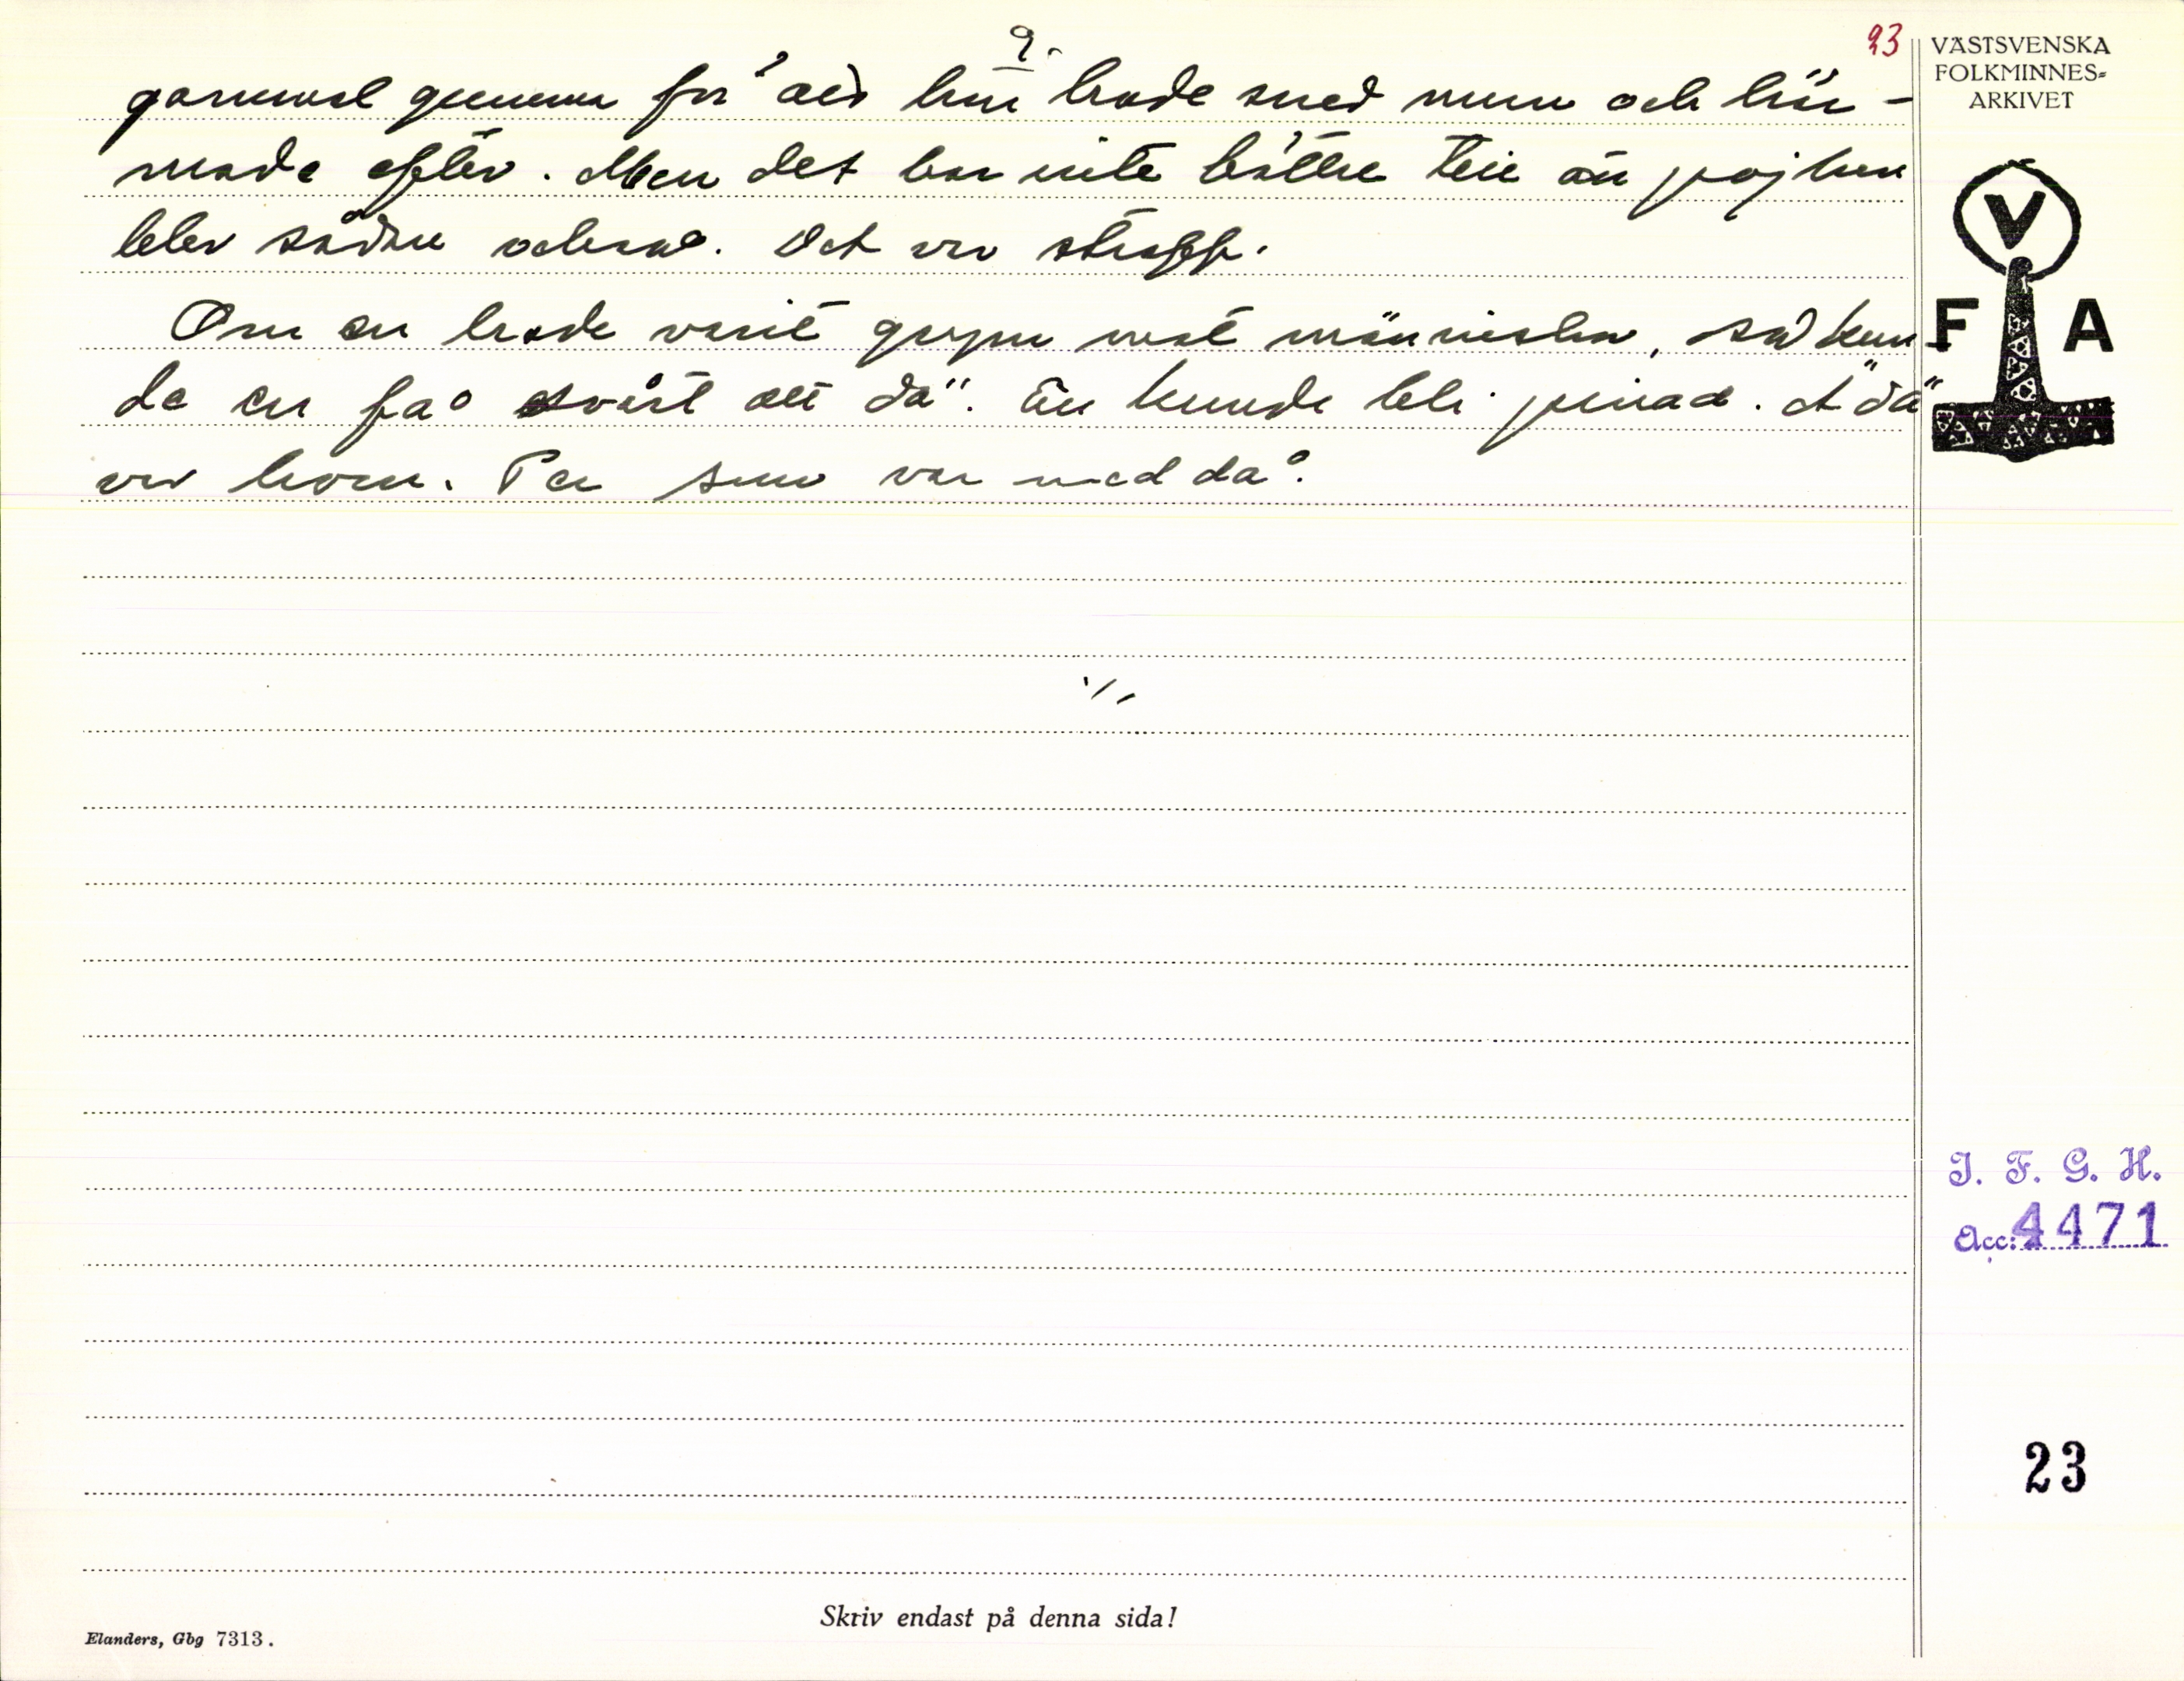 9.
23
gammal gumma för att hon hade sned mun och här-
made efter. Men det bar inte bättre till än pojken
blev sådan också. Det var straff.
Om en hade varit grym mot människor, så kun-
de en få svårt att dö. En kunde bli pinad.
var hon. som var med då.
VÄSTSVENSKA
FOLKMINNES-
ARKIVET
V
F A
I. F. G. H.
Acc: 4471
23
Skriv endast på denna sida!
Elanders, Gbg 7313.